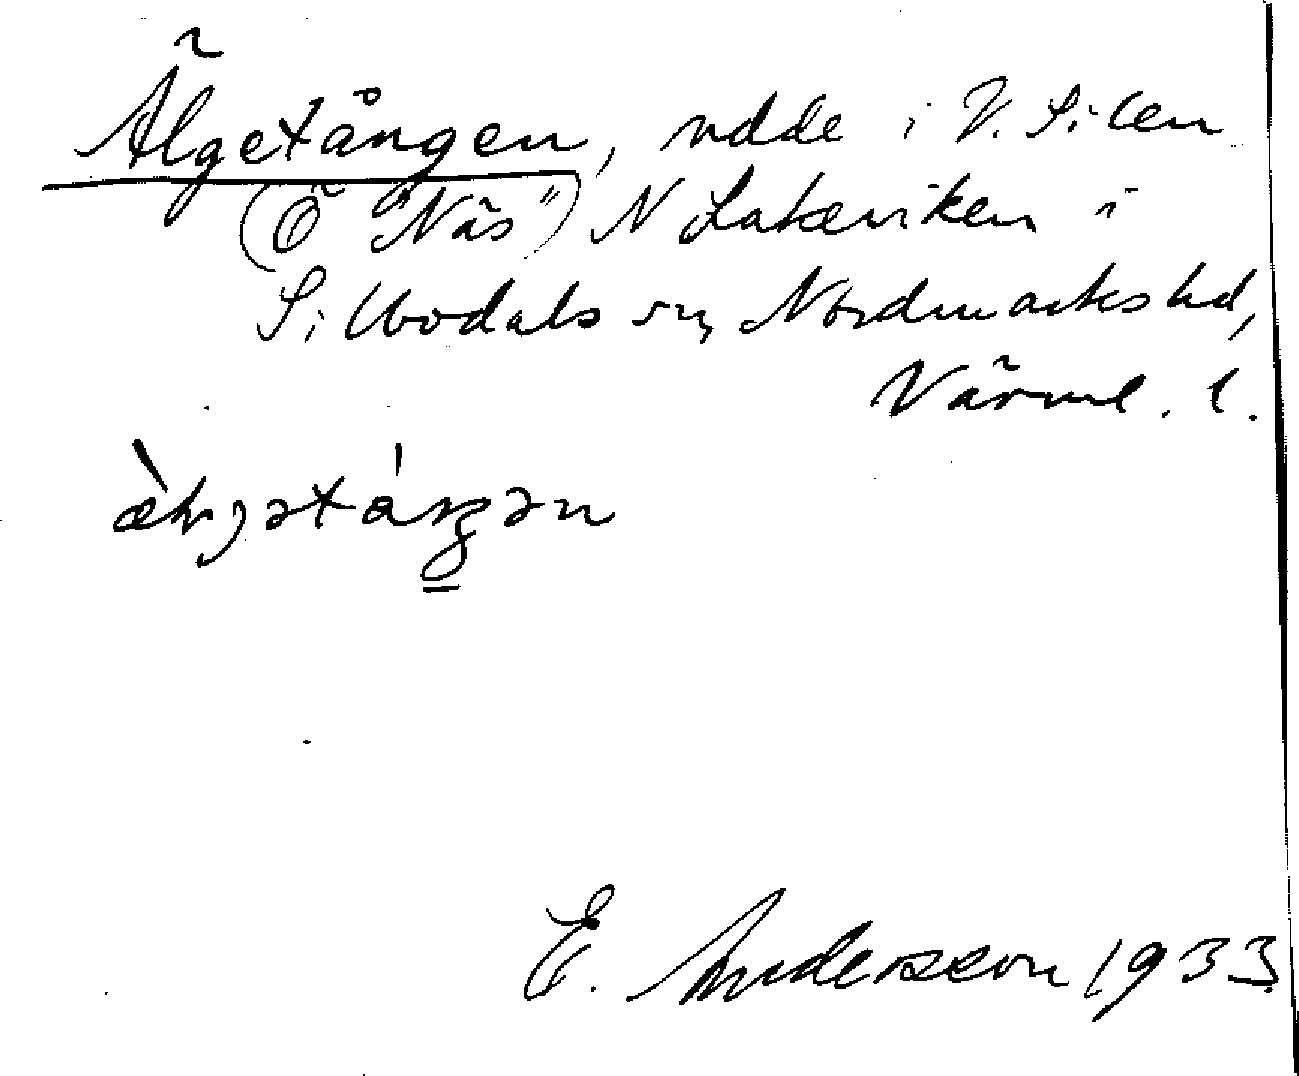 Älgetången, udde i V. Silen
(Ö "Näs") N Lakeviken i
Sillbodals sn, Nordmarks hd,
Värml. l.
E. Andersson 1933